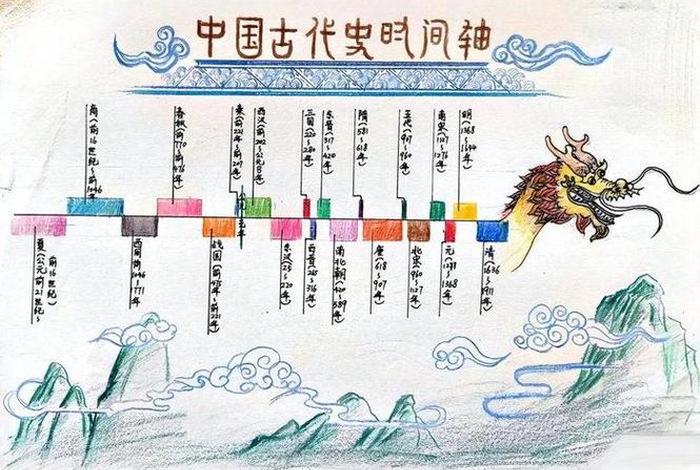 中国古代史时间轴
商(前16世纪~前1046年)
春秋(前770~前476年)
秦(前221年~前207年)
西汉(前202~公元8年)
三国(220~280年)
东晋(317~420年)
隋(581~618年)
五代(907~960年)
南宋(1127~1276年)
明(1368~1644年)
元年
夏(公元前21世纪~
前16世纪)
西周(前1046~
前771年)
战国(前475年~前221年)
东汉(25~220年)
西晋(265~316年)
南北朝(420~589年)
唐(618~907年)
北宋(960~1127年)
元(1271~1368年)
清(1636~1911年)